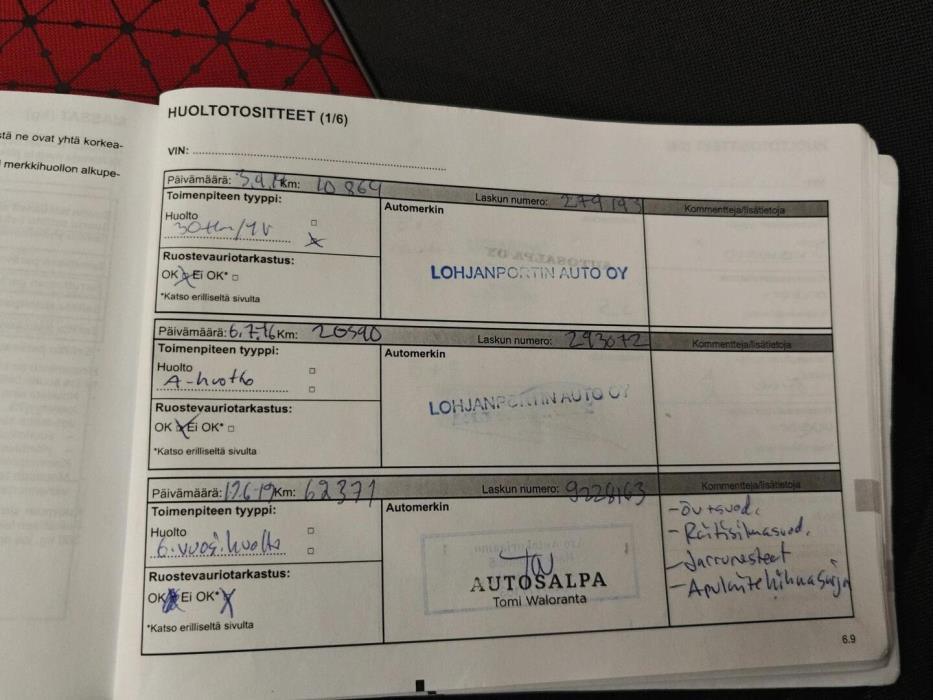 HUOLTOTOSITTEET (1/6)
stä ne ovat yhtä korkea-
merkkihuollon alkupe-
VIN:
Päivämäärä: 3.9.14 Km: 10 864 Laskun numero: 279193 Kommentteja/lisätietoja
Toimenpiteen tyyppi: Automerkin
Huolto
30tkm/1V
LOHJANPORTIN AUTO OY
Ruostevauriotarkastus:
OK Ei OK*
*Katso erilliseltä sivulta
Päivämäärä: 6.7.16 Km: 20590 Laskun numero: 293072 Kommentteja/lisätietoja
Toimenpiteen tyyppi: Automerkin
Huolto
A-huolto
LOHJANPORTIN AUTO OY
Ruostevauriotarkastus:
OK Ei OK*
*Katso erilliseltä sivulta
Päivämäärä: 17.6.19 Km: 62371 Laskun numero: 9228163 Kommentteja/lisätietoja
Toimenpiteen tyyppi: Automerkin
Huolto
6.vuosi.huolto
AUTOSALPA
Tomi Waloranta
- Öv+suod.
- Raitisilmasuod.
- Jarrunesteet
- Apulaitehihnasarja
Ruostevauriotarkastus:
OK Ei OK*
*Katso erilliseltä sivulta
6.9